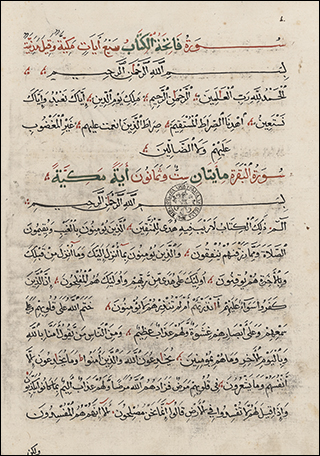 سورة فاتحة الكتاب سبع آيات مكية وقيل مدنية
بسم الله الرحمن الرحيم
الحمد لله رب العالمين الرحمن الرحيم ملك يوم الدين إياك نعبد وإياك
نستعين اهدنا الصراط المستقيم صراط الذين أنعمت عليهم غير المغضوب
عليهم ولا الضالين
سورة البقرة مايتان ست وثمانون آية مكية
بسم الله الرحمن الرحيم
الم ذلك الكتاب لا ريب فيه هدى للمتقين الذين يؤمنون بالغيب ويقيمون
الصلاة ومما رزقناهم ينفقون والذين يؤمنون بما أنزل إليك وما أنزل من قبلك
وبالآخرة هم يوقنون أولئك على هدى من ربهم وأولئك هم المفلحون إن الذين
كفروا سواء عليهم أأنذرتهم أم لم تنذرهم لا يؤمنون ختم الله على قلوبهم وعلى
سمعهم وعلى أبصارهم غشاوة ولهم عذاب عظيم ومن الناس من يقول آمنا بالله
وباليوم الآخر وما هم بمؤمنين يخادعون الله والذين آمنوا وما يخادعون إلا
أنفسهم وما يشعرون في قلوبهم مرض فزادهم الله مرضا ولهم عذاب أليم بما كانوا يكذبون
وإذا قيل لهم لا تفسدوا في الأرض قالوا إنما نحن مصلحون ألا إنهم هم المفسدون
ولكن